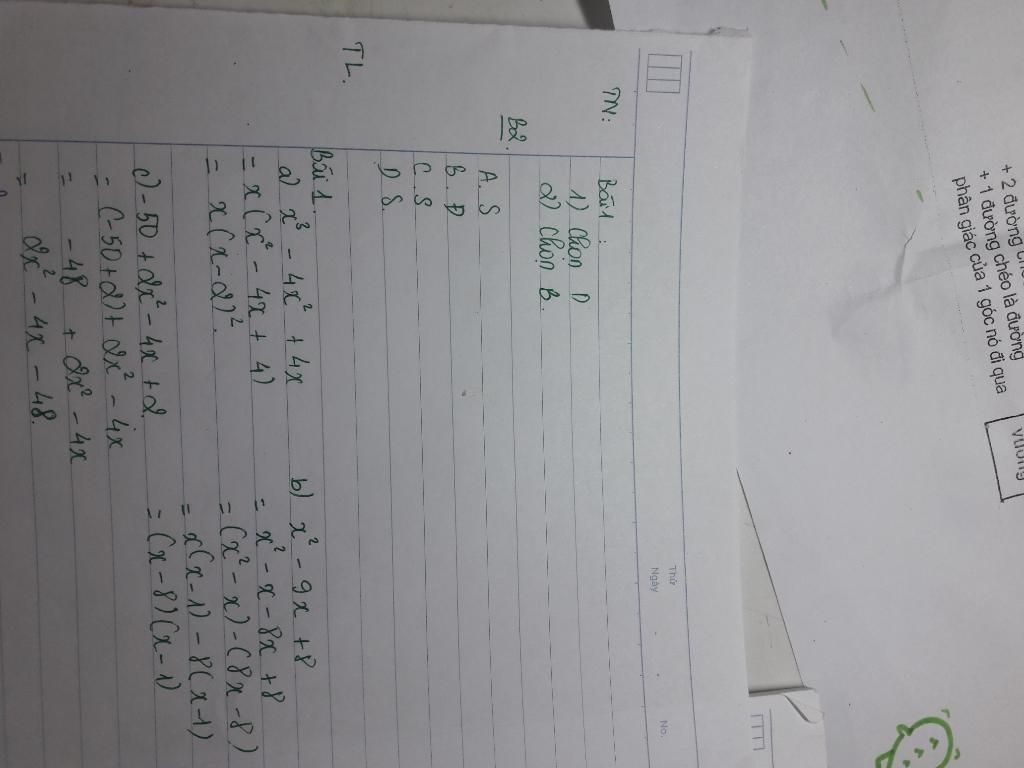 + 1 đường chéo là đường
phân giác của 1 góc nó đi qua
Thứ
Ngày
No.
TN:
Bài 1 :
1) Chọn D
2) Chọn B.
B2.
A. S
B. Đ
C. S
D S.
TL.
Bài 1.
a) x³ - 4x² + 4x
= x(x² - 4x + 4)
= x(x - 2)².
b) x² - 9x + 8
= x² - x - 8x + 8
= (x² - x) - (8x - 8)
= x(x - 1) - 8(x - 1)
= (x - 8)(x - 1)
c) - 50 + 2x² - 4x + 2
= (-50 + 2) + 2x² - 4x
= -48 + 2x² - 4x
= 2x² - 4x - 48.